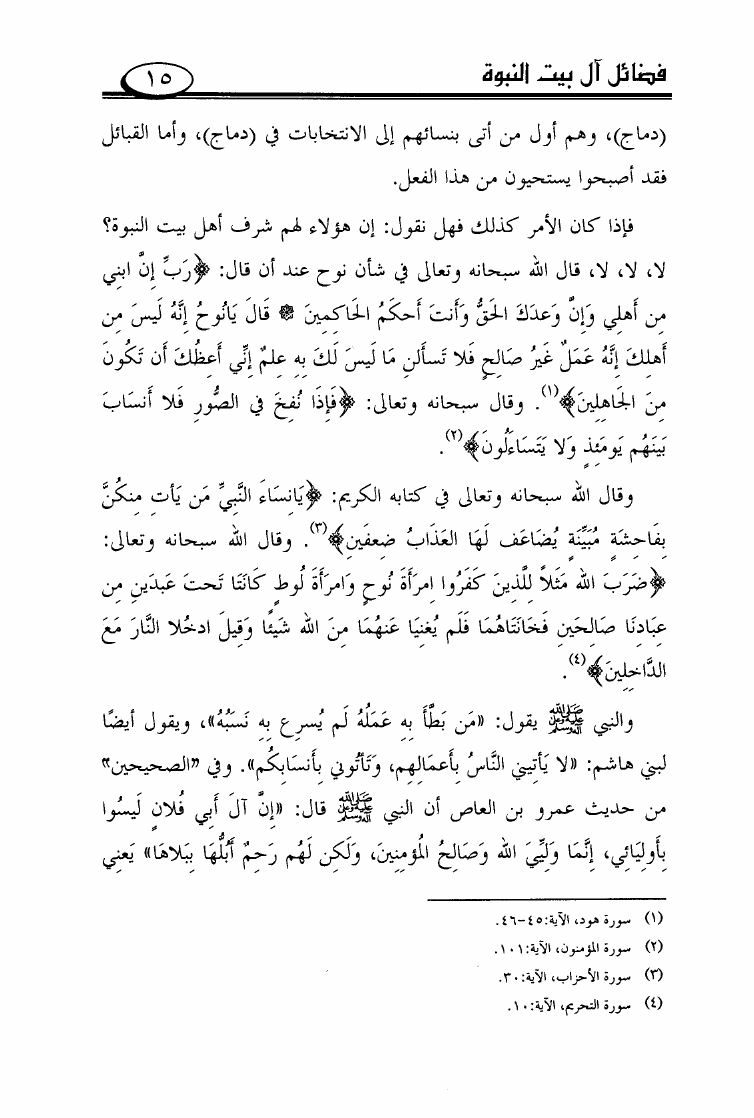 فضائل آل بيت النبوة ١٥
(دماج)، وهم أول من أتى بنسائهم إلى الانتخابات في (دماج)، وأما القبائل
فقد أصبحوا يستحيون من هذا الفعل.
فإذا كان الأمر كذلك فهل نقول: إن هؤلاء لهم شرف أهل بيت النبوة؟
لا، لا، لا، قال الله سبحانه وتعالى في شأن نوح عند أن قال: ﴿رَبِّ إِنَّ ابنِي
مِن أَهلِي وَإِنَّ وَعدَكَ الحَقُّ وَأَنتَ أَحكَمُ الحَاكِمِينَ * قَالَ يَانُوحُ إِنَّهُ لَيسَ مِن
أَهلِكَ إِنَّهُ عَمَلٌ غَيرُ صَالِحٍ فَلا تَسأَلنِ مَا لَيسَ لَكَ بِهِ عِلمٌ إِنِّي أَعِظُكَ أَن تَكُونَ
مِنَ الجَاهِلِينَ﴾(١). وقال سبحانه وتعالى: ﴿فَإِذَا نُفِخَ فِي الصُّورِ فَلا أَنسَابَ
بَينَهُم يَومَئِذٍ وَلا يَتَسَاءَلُونَ﴾(٢).
وقال الله سبحانه وتعالى في كتابه الكريم: ﴿يَانِسَاءَ النَّبِيِّ مَن يَأتِ مِنكُنَّ
بِفَاحِشَةٍ مُبَيِّنَةٍ يُضَاعَف لَهَا العَذَابُ ضِعفَينِ﴾(٣). وقال الله سبحانه وتعالى:
﴿ضَرَبَ الله مَثَلاً لِلَّذِينَ كَفَرُوا امرَأَةَ نُوحٍ وَامرَأَةَ لُوطٍ كَانَتَا تَحتَ عَبدَينِ مِن
عِبَادِنَا صَالِحَينِ فَخَانَتَاهُمَا فَلَم يُغنِيَا عَنهُمَا مِنَ الله شَيئًا وَقِيلَ ادخُلا النَّارَ مَعَ
الدَّاخِلِينَ﴾(٤).
والنبي ﷺ يقول: «مَن بَطَّأَ بِهِ عَمَلُهُ لَم يُسرِع بِهِ نَسَبُهُ»، ويقول أيضًا
لبني هاشم: «لا يَأتِينِي النَّاسُ بِأَعمَالِهِم، وَتَأتُونِي بِأَنسَابِكُم». وفي "الصحيحين"
من حديث عمرو بن العاص أن النبي ﷺ قال: «إِنَّ آلَ أَبِي فُلانٍ لَيسُوا
بِأَولِيَائِي، إِنَّمَا وَلِيِّيَ الله وَصَالِحُ المُؤمِنِينَ، وَلَكِن لَهُم رَحِمٌ أَبُلُّهَا بِبَلاهَا» يَعنِي
(١) سورة هود، الآية:٤٥-٤٦.
(٢) سورة المؤمنون، الآية:١٠١.
(٣) سورة الأحزاب، الآية:٣٠.
(٤) سورة التحريم، الآية:١٠.